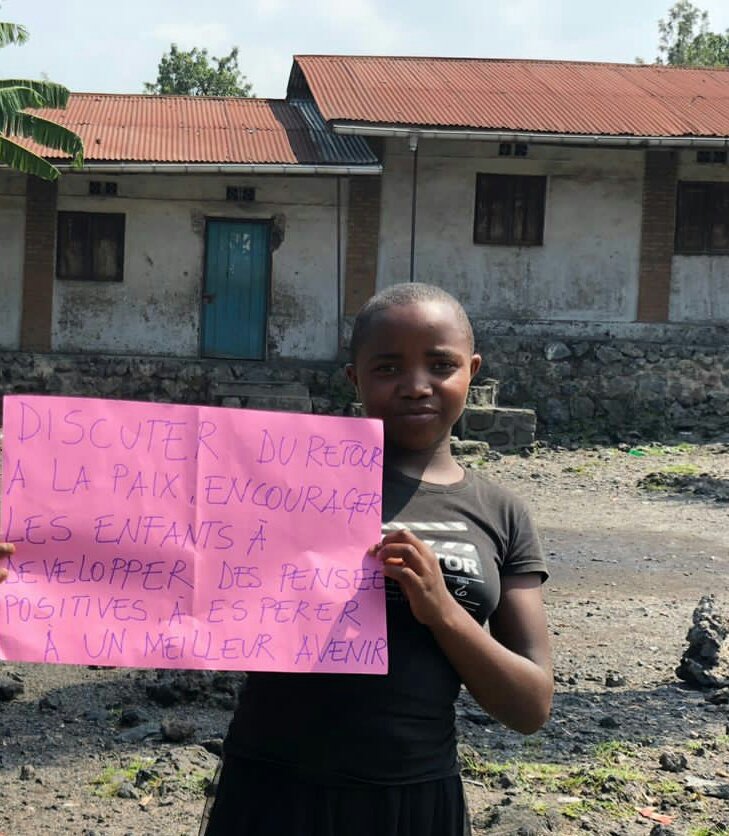 DISCUTER DU RETOUR
A LA PAIX, ENCOURAGER
LES ENFANTS À
DEVELOPPER DES PENSEE
POSITIVES, À ESPERER
À UN MEILLEUR AVENIR
TOR
6